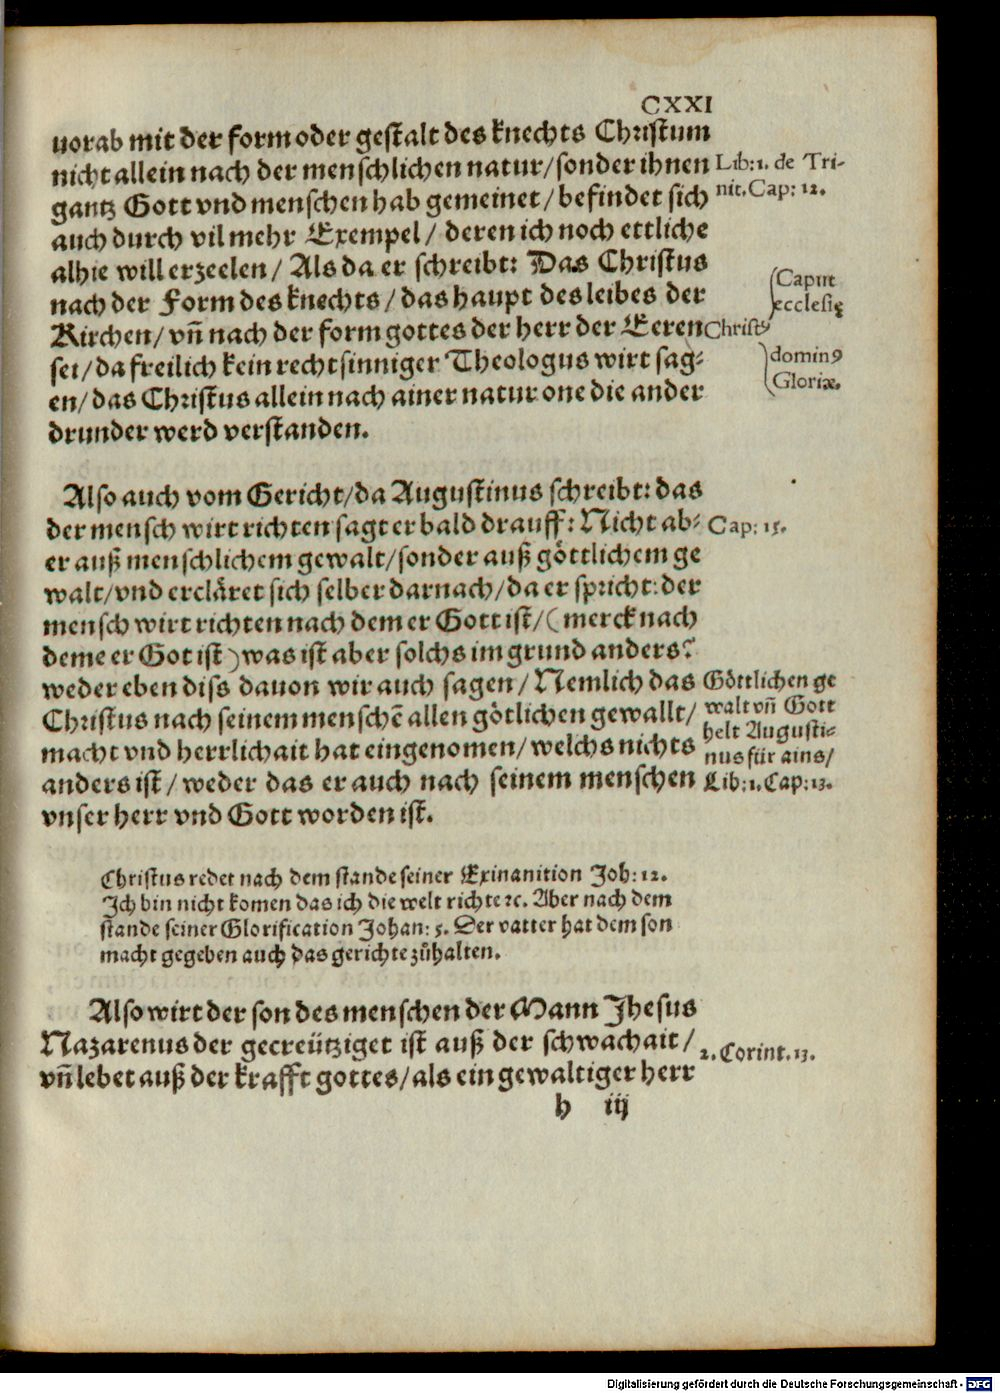 CXXI
vorab mit der form oder gestalt des knechts Christum
nicht allein nach der menschlichen natur/sonder ihnen
gantz Gott vnd menschen hab gemeinet/befindet sich
auch durch vil mehr Exempel/ deren ich noch ettliche
alhie will erzeelen/ Als da er schreibt: Das Christus
nach der Form des knechts/das haupt des leibes der
Kirchen/ vn̄ nach der form gottes der herr der Eeren
sei/da freilich kein rechtsinniger Theologus wirt sag⸗
en/das Christus allein nach ainer natur one die ander
drunder werd verstanden.
Lib:1. de Tri-
nit.Cap: 12.
Caput
ecclesię
Christꝰ
dominꝰ
Gloriæ.
Also auch vom Gericht/da Augustinus schreibt: das
der mensch wirt richten sagt er bald drauff: Nicht ab⸗
er auß menschlichem gewalt/sonder auß göttlichem ge
walt/vndercläret sich selber darnach/da er spricht: der
mensch wirt richten nach dem er Gott ist/(merck nach
deme er Got ist) was ist aber solchs im grund anders?
weder eben diss dauon wir auch sagen/ Nemlich das
Christus nach seinem menschē allen götlichen gewallt/
macht vnd herrlichait hat eingenomen/welchs nichts
anders ist/ weder das er auch nach seinem menschen
vnser herr vnd Gott worden ist.
Cap: 15.
Göttlichen ge
walt vn̄ Gott
helt Augusti⸗
nus für ains/
Lib:1.Cap:13.
Christus redet nach dem stande seiner Exinanition Joh: 12.
Ich bin nicht komen das ich die welt richte ꝛc. Aber nach dem
stande seiner Glorification Johan: 5. Der vatter hat dem son
macht gegeben auch das gerichte zůhalten.
Also wirt der son des menschen der Mann Jhesus
Nazarenus der gecreütziget ist auß der schwachait/
vn̄ lebet auß der krafft gottes/als ein gewaltiger herr
2. Corint. 13.
h iij
Digitalisierung gefördert durch die Deutsche Forschungsgemeinschaft - DFG